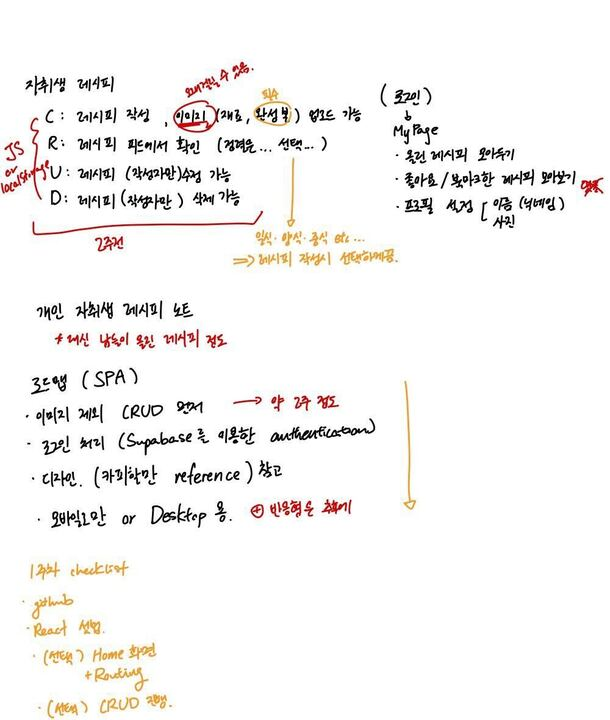 자취생 레시피
오래걸릴 수 있음.
필수
C : 레시피 작성, 이미지 (재료, 완성본) 업로드 가능
R : 레시피 피드에서 확인 (정렬은... 선택...)
U : 레시피 (작성자만) 수정 가능
D : 레시피 (작성자만) 삭제 가능
JS
or
localstorage
2주전
일식·양식·중식 etc...
⇒ 레시피 작성시 선택하게끔.
(로그인)
↓
MyPage
· 올린 레시피 모아두기
· 좋아요/북마크한 레시피 모아보기
· 프로필 설정 [ 이름 (닉네임)
사진
개인 자취생 레시피 노트
* 대신 남들이 올린 레시피 정도
로드맵 (SPA)
· 이미지 제외 CRUD 먼저 → 약 2주 정도
· 로그인 처리 (Supabase를 이용한 authentication)
· 디자인. (카피할만 reference) 참고
· 모바일로만 or Desktop 용. ⊕ 반응형은 추후에
1주차 checklist
· github
· React 셋업.
· (선택) Home 화면
+ Routing
· (선택) CRUD 진행.